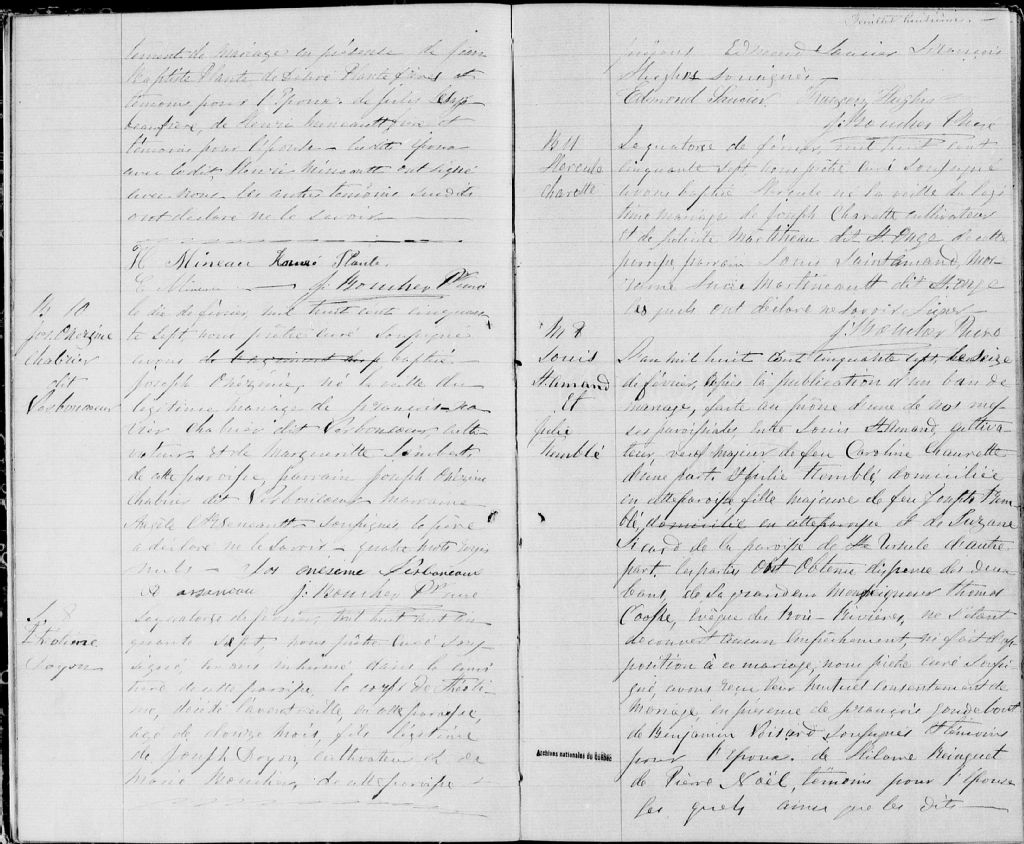 tement de mariage en présence de Jean
Baptiste Plante de Désiré Plante frères et
témoins pour l'Epoux de Jules
beaufrère, de Henri Mineault et
témoins pour l'épouse - lesdits époux
avec ledit Henri Mineault ont signé
avec nous. les autres témoins susdits
ont déclaré ne le savoir
H Mineau Honoré Plante
J. Boucher Ptre Curé
B. 10
Jos. Onézime
Chatirier
dit
Lesbonceaux
le dix de février, mil huit cent cinquan-
te sept, nous prêtre curé soussigné
avons baptisé
Joseph Onézime, né la veille du
légitime mariage de François-Xa-
vier Chatirier dit Lesbonceaux, culti-
vateur et de Marguerite Lambert
de cette paroisse, parrain Joseph Onézime
Chatirier dit Lesbonceaux marraine
Arseneault - soussignés le père
a déclaré ne le savoir - quatre mots rayés
nuls - Jos onesime Lesbonceaux
A arseneau J. Boucher Ptre Curé
S. 8
Théotime
Doyon
Le quatorze de février, mil huit cent cin-
quante sept, nous prêtre curé sous-
signé, avons inhumé dans le cime-
tière de cette paroisse, le corps de Théoti-
me, décédé l'avant veille, en cette paroisse,
âgé de douze mois, fils légitime
de Joseph Doyon, cultivateur & de
Marie Boucher, de cette paroisse
Feuillet huitième.
Edmond Saucier & François
Hughes soussignés -
Edmond Saucier François Hughes
J. Boucher Ptre Curé
B. 11
Hercule
Charette
Le quatorze de février, mil huit cent
cinquante sept, nous prêtre curé soussigné
avons baptisé Hercule né la veille du légi-
time mariage de Joseph Charette cultivateur
et de Martineau dit St. Onge de cette
paroisse, parrain Louis Saint amand, mar-
raine Lucie Martineault dit St. Onge
lesquels ont déclaré ne savoir signer
J. Boucher Ptre Curé
M. 8
Louis
St. amand
Et
Julie
Tremblé
L'an mil huit cent cinquante sept, le seize
de février, après la publication d'un ban de
mariage, faite au prône d'une de nos mes-
ses paroissiales entre Louis St. Amand, cultiva-
teur, veuf majeur de feu Caroline Charette
d'une part. & Julie Tremblé, domiciliée
en cette paroisse fille majeure de feu Joseph Trem-
blé, domicilié en cette paroisse et de Suzane
Sicard de la paroisse de Ste Ursule d'autre
part. les parties ont obtenu dispense des deux
bans, de Sa grandeur Monseigneur Thomas
Cooke, évêque des Trois-Rivières, ne s'étant
découvert aucun empêchement, ni fait d'op-
position à ce mariage, nous prêtre curé soussi-
gné, avons reçu leur mutuel consentement de
mariage, en présence de François
de Benjamin Voisard soussignés témoins
pour l'époux. de Hilaire Beinguet
de Pierre Noël, témoins pour l'épouse
les quels ainsi que les dits
Archives nationales du Québec